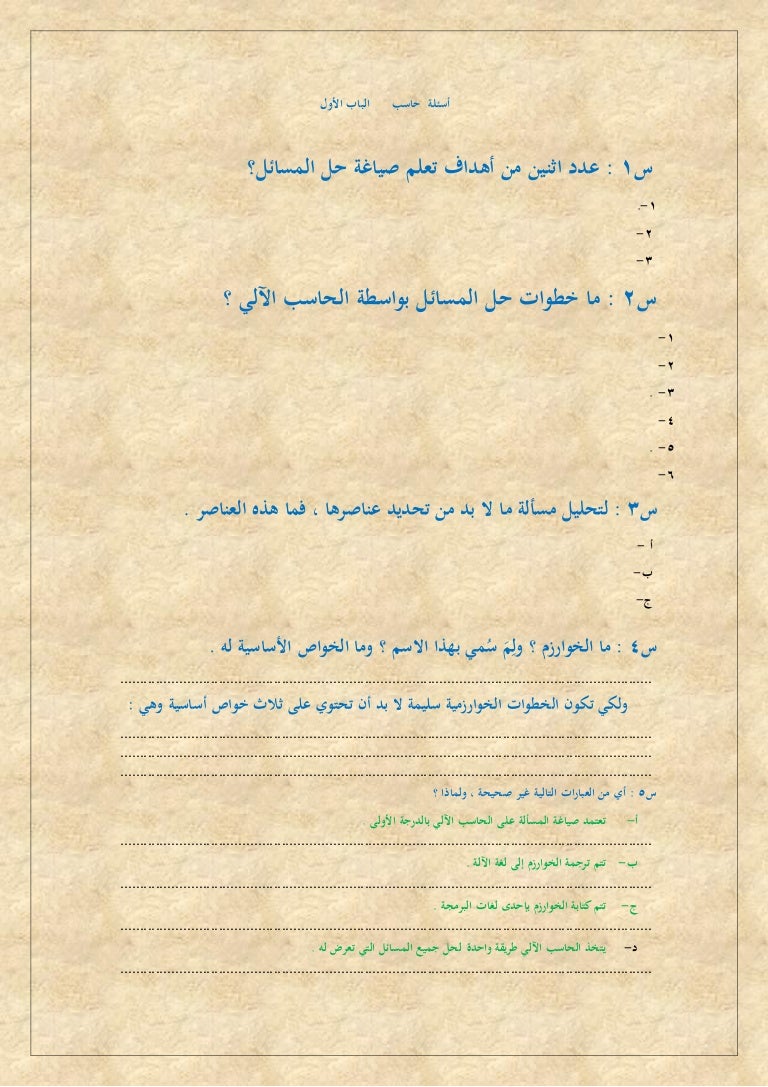 أسئلة حاسب الباب الأول
س١ : عدد اثنين من أهداف تعلم صياغة حل المسائل؟
١-.
٢-
٣-
س٢ : ما خطوات حل المسائل بواسطة الحاسب الآلي ؟
١-
٢-
٣- .
٤-
٥- .
٦-
س٣ : لتحليل مسألة ما لا بد من تحديد عناصرها ، فما هذه العناصر .
أ -
ب-
ج-
س٤ : ما الخوارزم ؟ ولِمَ سُمي بهذا الاسم ؟ وما الخواص الأساسية له .
ولكي تكون الخطوات الخوارزمية سليمة لا بد أن تحتوي على ثلاث خواص أساسية وهي :
س٥ : أي من العبارات التالية غير صحيحة ، ولماذا ؟
أ- تعتمد صياغة المسألة على الحاسب الآلي بالدرجة الأولى .
ب- تتم ترجمة الخوارزم إلى لغة الآلة .
ج- تتم كتابة الخوارزم بإحدى لغات البرمجة .
د- يتخذ الحاسب الآلي طريقة واحدة لحل جميع المسائل التي تعرض له .